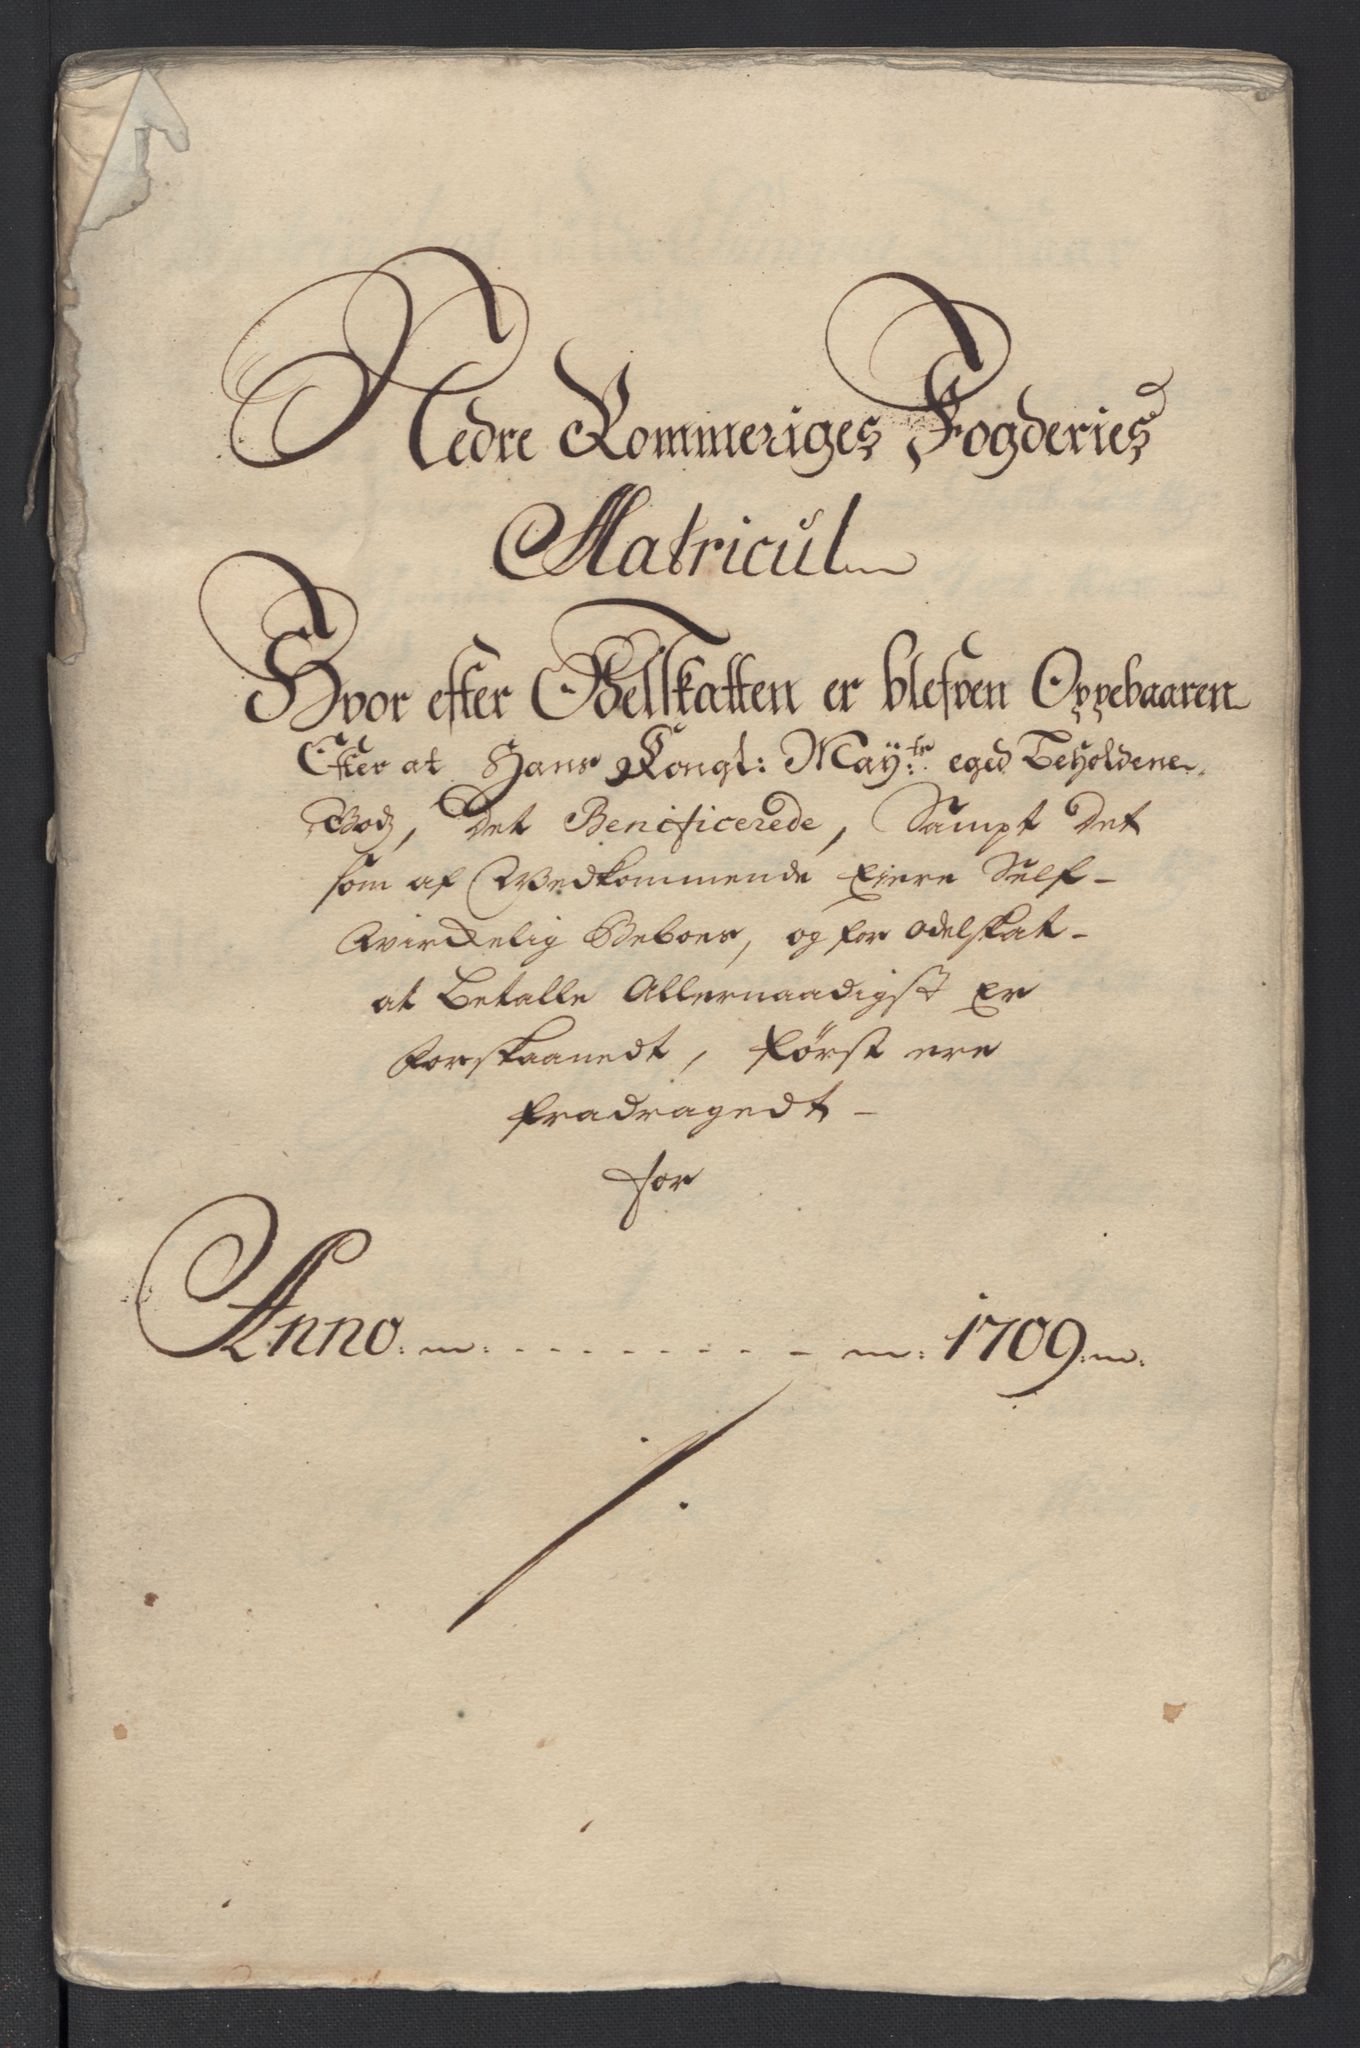 Nedre Rommeriges Fogderies
Matricul
Hvor efter Odelskatten er blefven Oppebaaren
Efter at Hans Kongl: May:ts eged Beholdene
Godz, Det Beneficerede, Sampt Det
som af Wedkommende Eiere Self-
Wirckelig Beboes, og for odelskat-
at Betalle Allernaadigst Er
Forskaanedt, Først ere
fradragedt -
for
Anno 1709